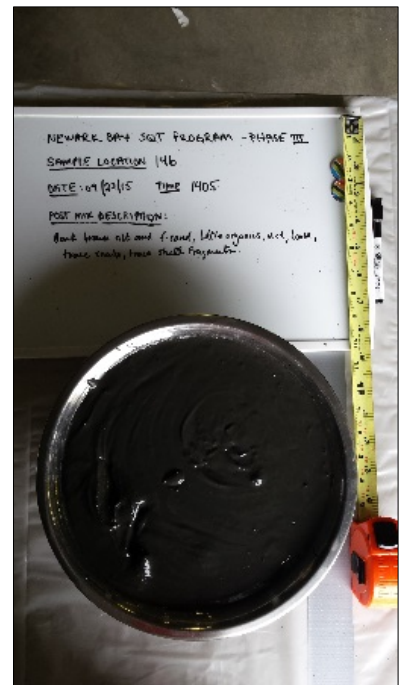 NEWARK BAY SQT PROGRAM - PHASE III
SAMPLE LOCATION 146
DATE: 09/22/15 TIME 1405
POST MIX DESCRIPTION:
brown silt and f-sand, little organics, wet, loose,
trace snails, trace shell fragments.